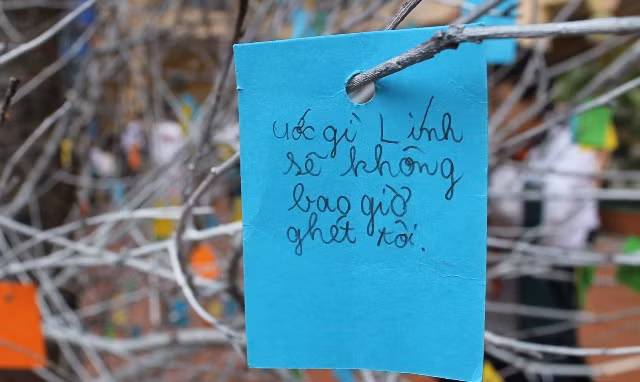 ước gì Linh
sẽ không
bao giờ
ghét tôi.